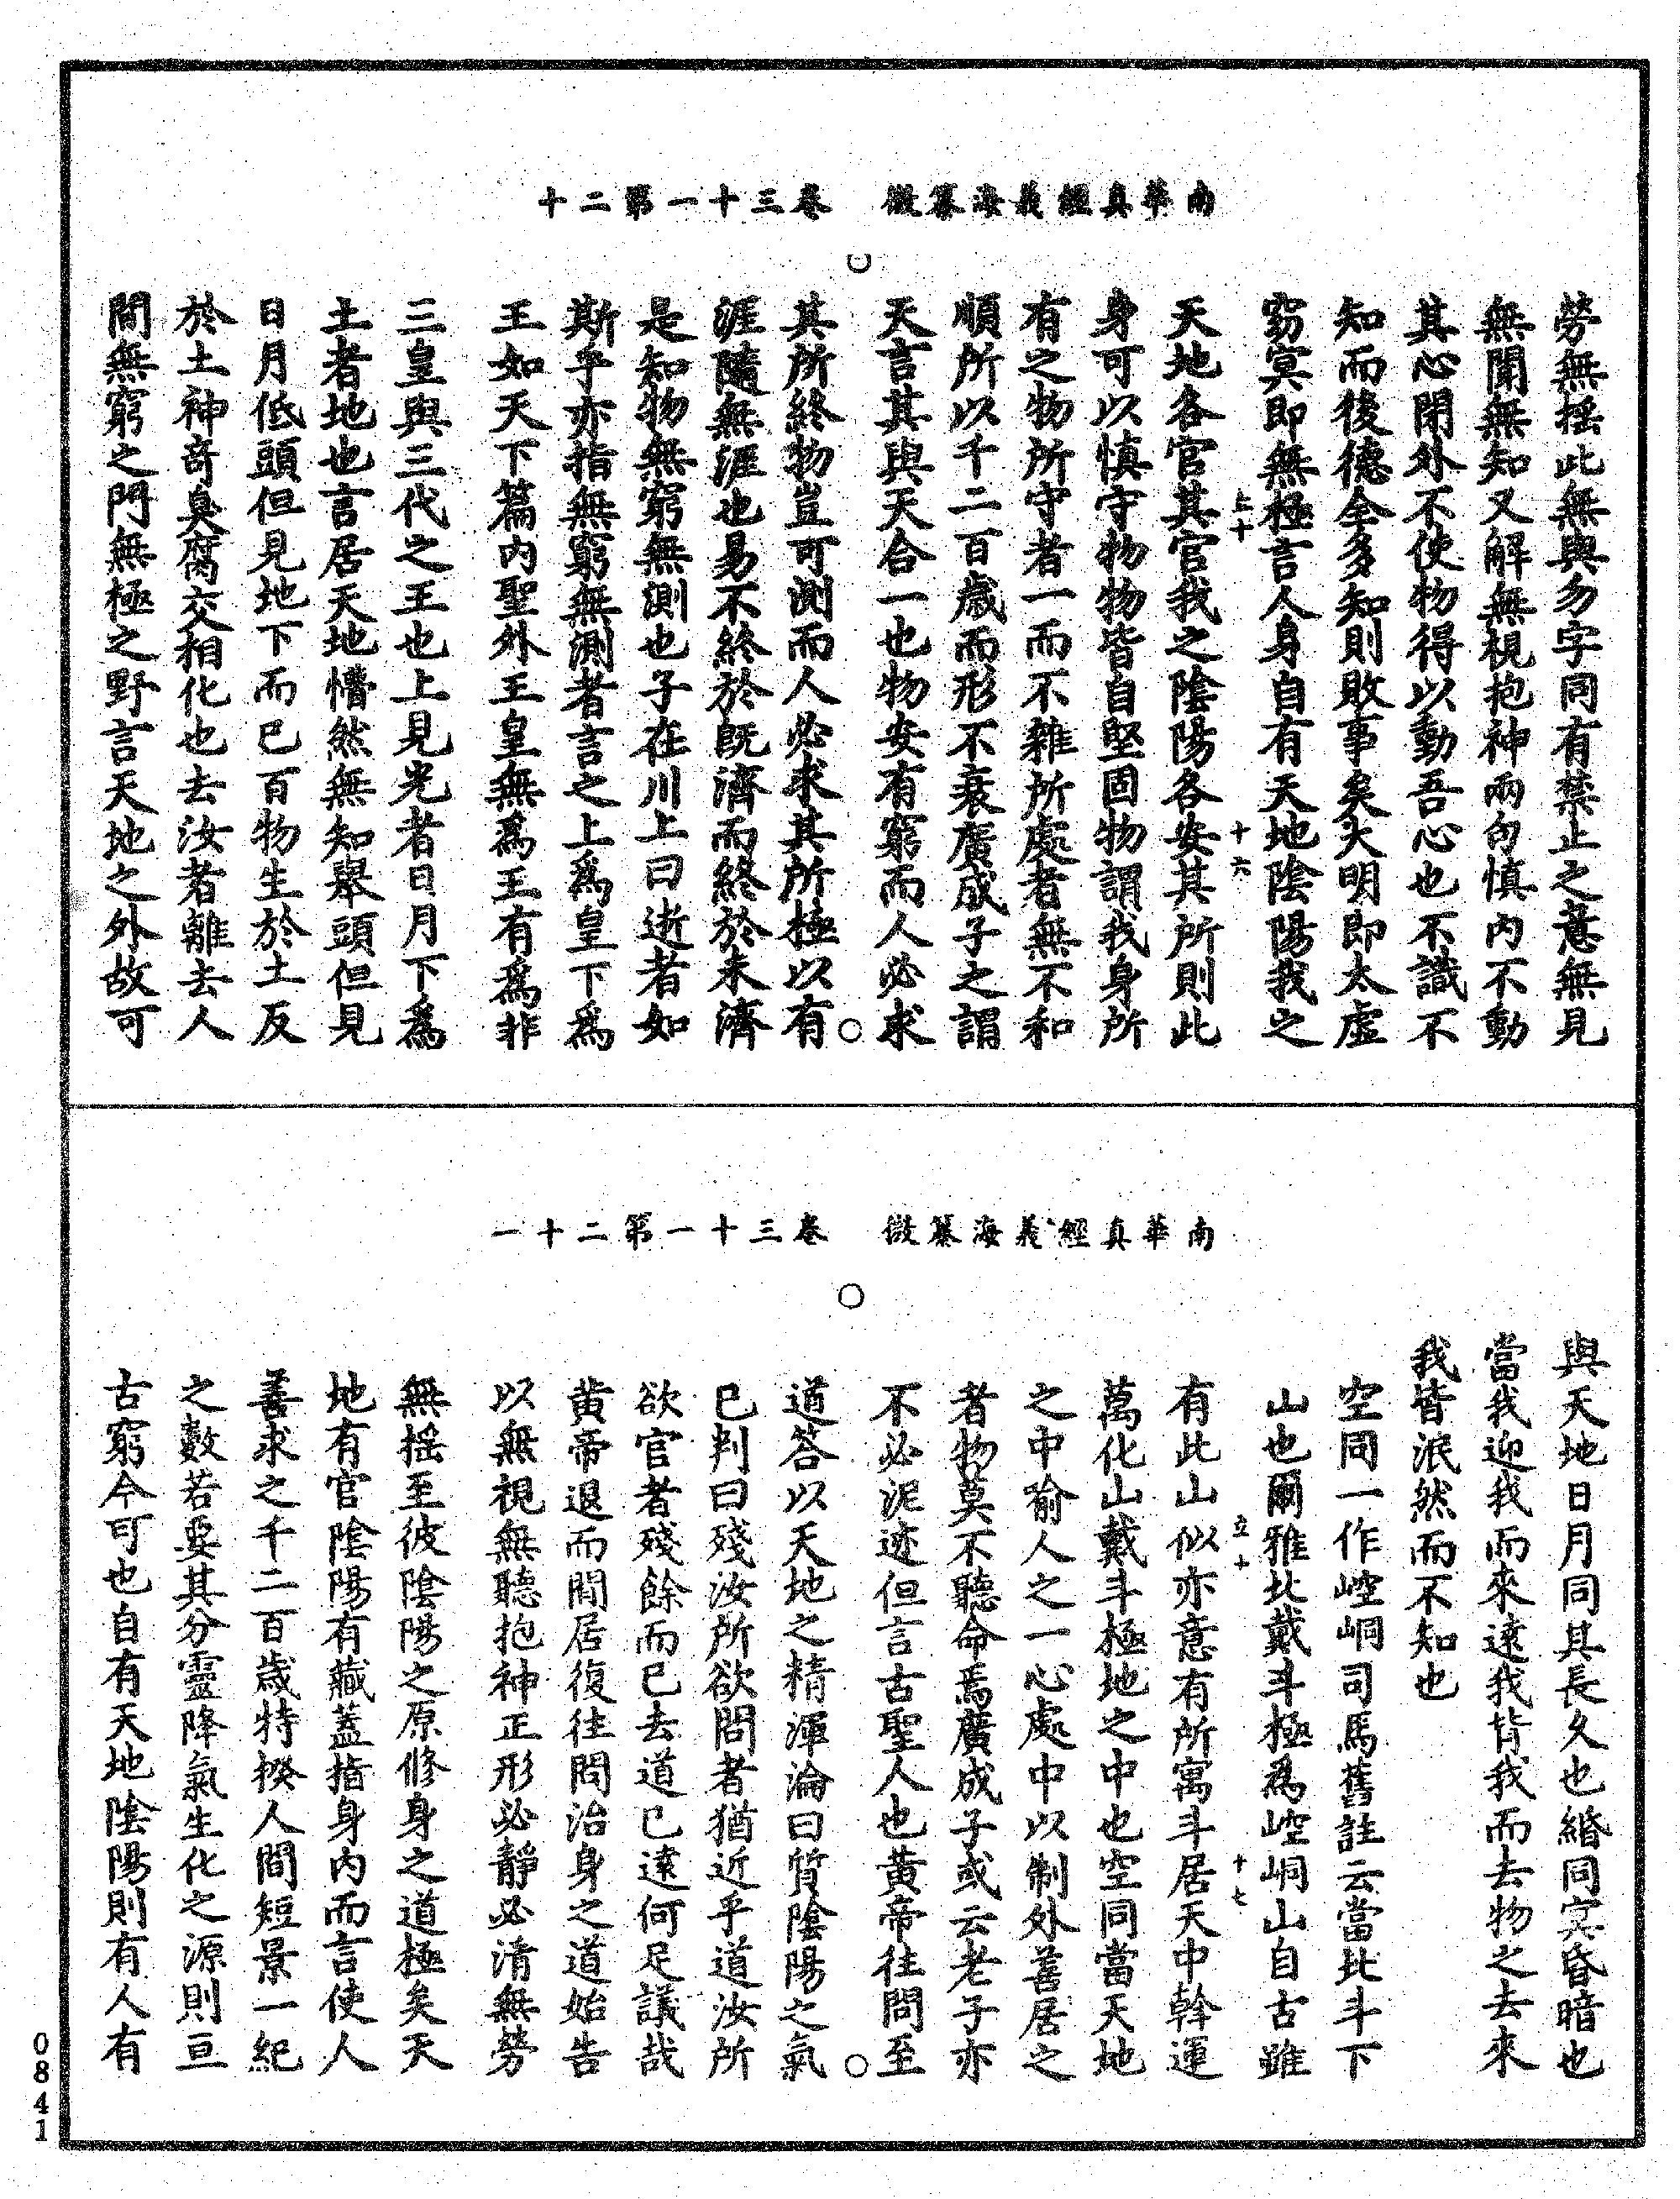 南華真經義海纂微　卷三十一第二十
勞無揺此無與勿字同有禁止之意無見
無聞無知又解無視抱神兩句慎内不動
其心閉外不使物得以動吾心也不識不
知而後德全多知則敗事矣大明即太虛
窈冥即無極言人身自有天地陰陽我之
上十　十六
天地各官其官我之陰陽各安其所則此
身可以慎守物物皆自堅固物謂我身所
有之物所守者一而不雜所處者無不和
順所以千二百歲而形不衰廣成子之謂
天言其與天合一也物安有窮而人必求
其所終物豈可測而人必求其所極以有
涯隨無涯也易不終於既濟而終於未濟
是知物無窮無測也子在川上曰逝者如
斯乎亦指無窮無測者言之上爲皇下爲
王如天下篇内聖外王皇無爲王有爲非
三皇與三代之王也上見光者日月下爲
土者地也言居天地懵然無知舉頭但見
日月低頭但見地下而已百物生於土反
於土神奇臭腐交相化也去汝者離去人
間無窮之門無極之野言天地之外故可
南華真經義海纂微　卷三十一第二十一
與天地日月同其長久也緡同冥昏暗也
當我迎我而來遠我背我而去物之去來
我皆泯然而不知也
空同一作崆峒司馬舊註云當北斗下
山也爾雅北戴斗極爲崆峒山自古雖
立十　十七
有此山似亦意有所寓斗居天中斡運
萬化山戴斗極地之中也空同當天地
之中喻人之一心處中以制外善居之
者物莫不聽命焉廣成子或云老子亦
不必泥迹但言古聖人也黄帝往問至
道答以天地之精渾淪曰質陰陽之氣
已判曰殘汝所欲問者猶近乎道汝所
欲官者殘餘而已去道已遠何足議哉
黄帝退而間居復往問治身之道始告
以無視無聽抱神正形必靜必清無勞
無揺至彼陰陽之原修身之道極矣天
地有官陰陽有藏蓋指身内而言使人
善求之千二百歲特揆人間短景一紀
之數若要其分靈降氣生化之源則亘
古窮今可也自有天地陰陽則有人有
0841